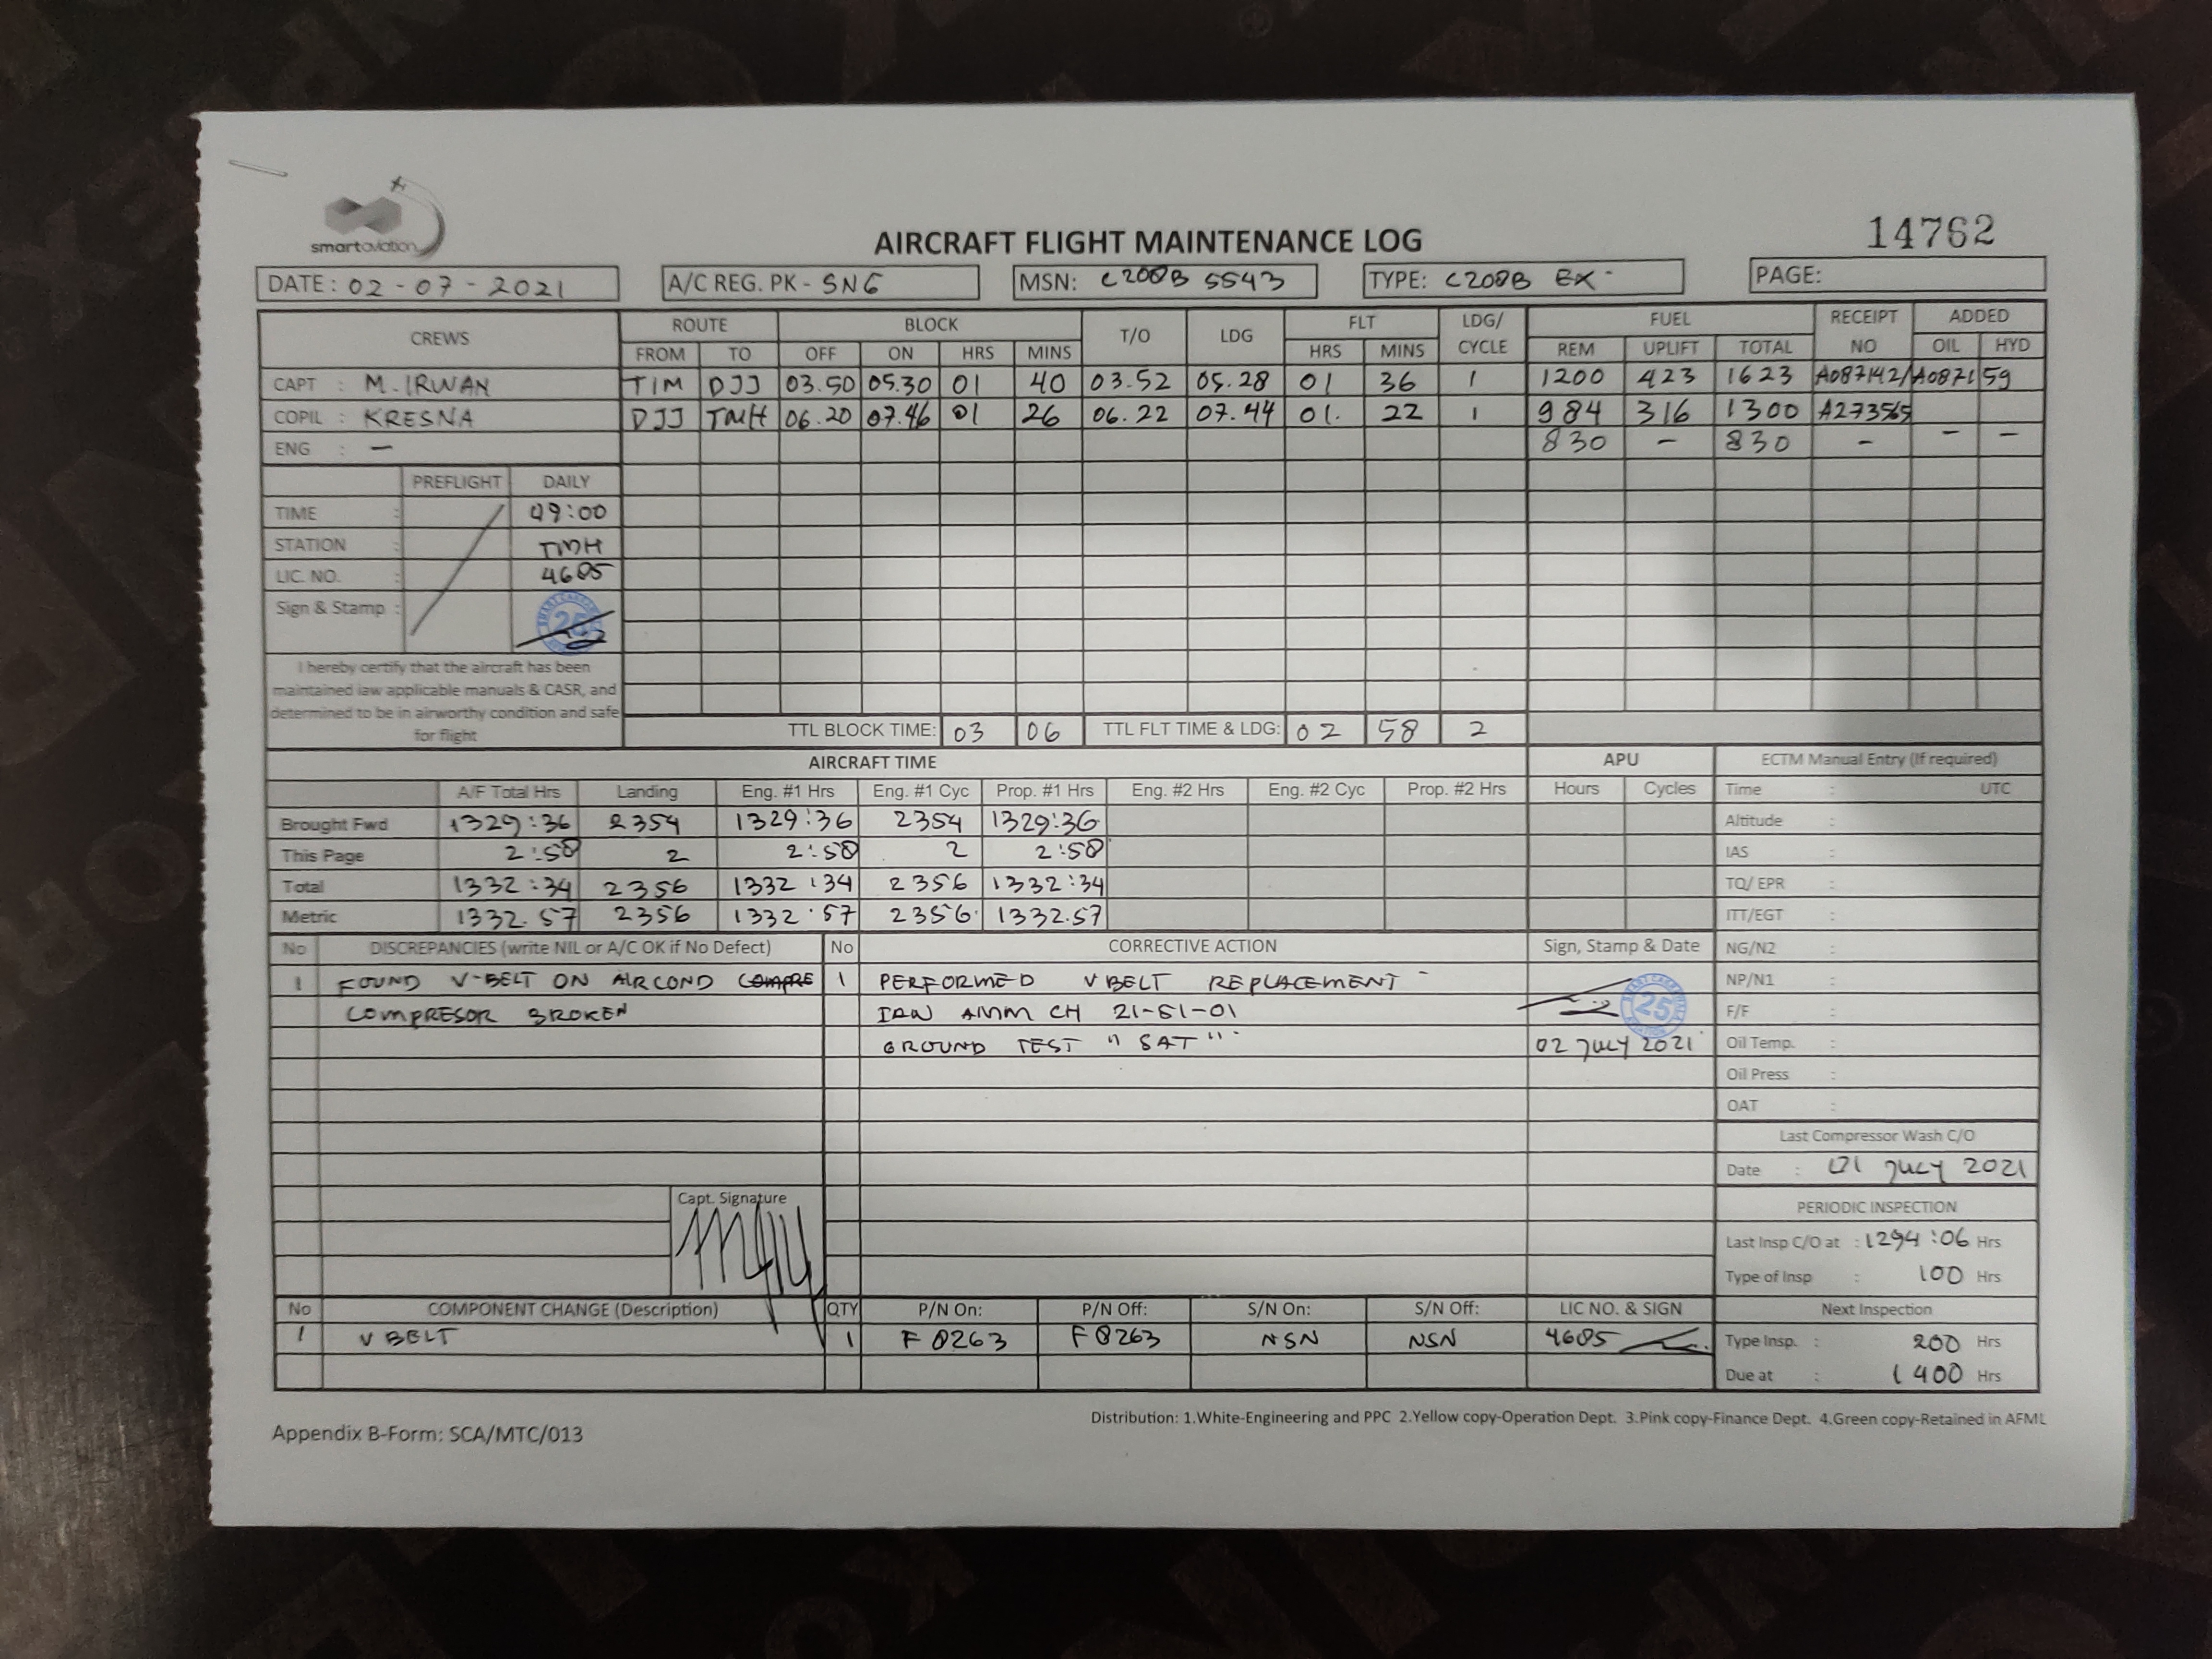 smartaviation
AIRCRAFT FLIGHT MAINTENANCE LOG
14762
DATE: 02-07-2021 A/C REG. PK - SNG MSN: C208B 5543 TYPE: C208B EX PAGE:
CREWS ROUTE BLOCK T/O LDG FLT LDG/ CYCLE FUEL RECEIPT NO ADDED
FROM TO OFF ON HRS MINS HRS MINS REM UPLIFT TOTAL OIL HYD
CAPT : M. IRWAN TIM DJJ 03.50 05.30 01 40 03.52 05.28 01 36 1 1200 423 1623 A087142/A087159
COPIL : KRESNA DJJ TMH 06.20 07.46 01 26 06.22 07.44 01. 22 1 984 316 1300 A273565
ENG : — 830 – 830 – – –
PREFLIGHT DAILY
TIME : 09:00
STATION : TMH
LIC. NO. : 4605
Sign & Stamp : 25
I hereby certify that the aircraft has been
maintained iaw applicable manuals & CASR, and
determined to be in airworthy condition and safe
for flight
TTL BLOCK TIME: 03 06 TTL FLT TIME & LDG: 02 58 2
AIRCRAFT TIME APU ECTM Manual Entry (If required)
A/F Total Hrs Landing Eng. #1 Hrs Eng. #1 Cyc Prop. #1 Hrs Eng. #2 Hrs Eng. #2 Cyc Prop. #2 Hrs Hours Cycles Time : UTC
Brought Fwd 1329:36 2354 1329:36 2354 1329:36 Altitude :
This Page 2:58 2 2:58 2 2:58 IAS :
Total 1332:34 2356 1332:34 2356 1332:34 TQ/ EPR :
Metric 1332.57 2356 1332.57 2356 1332.57 ITT/EGT :
No DISCREPANCIES (write NIL or A/C OK if No Defect) No CORRECTIVE ACTION Sign, Stamp & Date NG/N2 :
1 FOUND V-BELT ON AIRCOND COMPRE 1 PERFORMED V BELT REPLACEMENT NP/N1 :
COMPRESOR BROKEN IAW AMM CH 21-51-01 25 F/F :
GROUND TEST "SAT" 02 JULY 2021 Oil Temp. :
Oil Press :
OAT :
Last Compressor Wash C/O
Date : 01 JULY 2021
Capt. Signature
PERIODIC INSPECTION
Last Insp C/O at : 1294:06 Hrs
Type of Insp : 100 Hrs
No COMPONENT CHANGE (Description) QTY P/N On: P/N Off: S/N On: S/N Off: LIC NO. & SIGN Next Inspection
1 V BELT 1 F0263 F0263 NSN NSN 4605 Type Insp. : 200 Hrs
Due at : 1400 Hrs
Distribution: 1.White-Engineering and PPC 2.Yellow copy-Operation Dept. 3.Pink copy-Finance Dept. 4.Green copy-Retained in AFML
Appendix B-Form: SCA/MTC/013